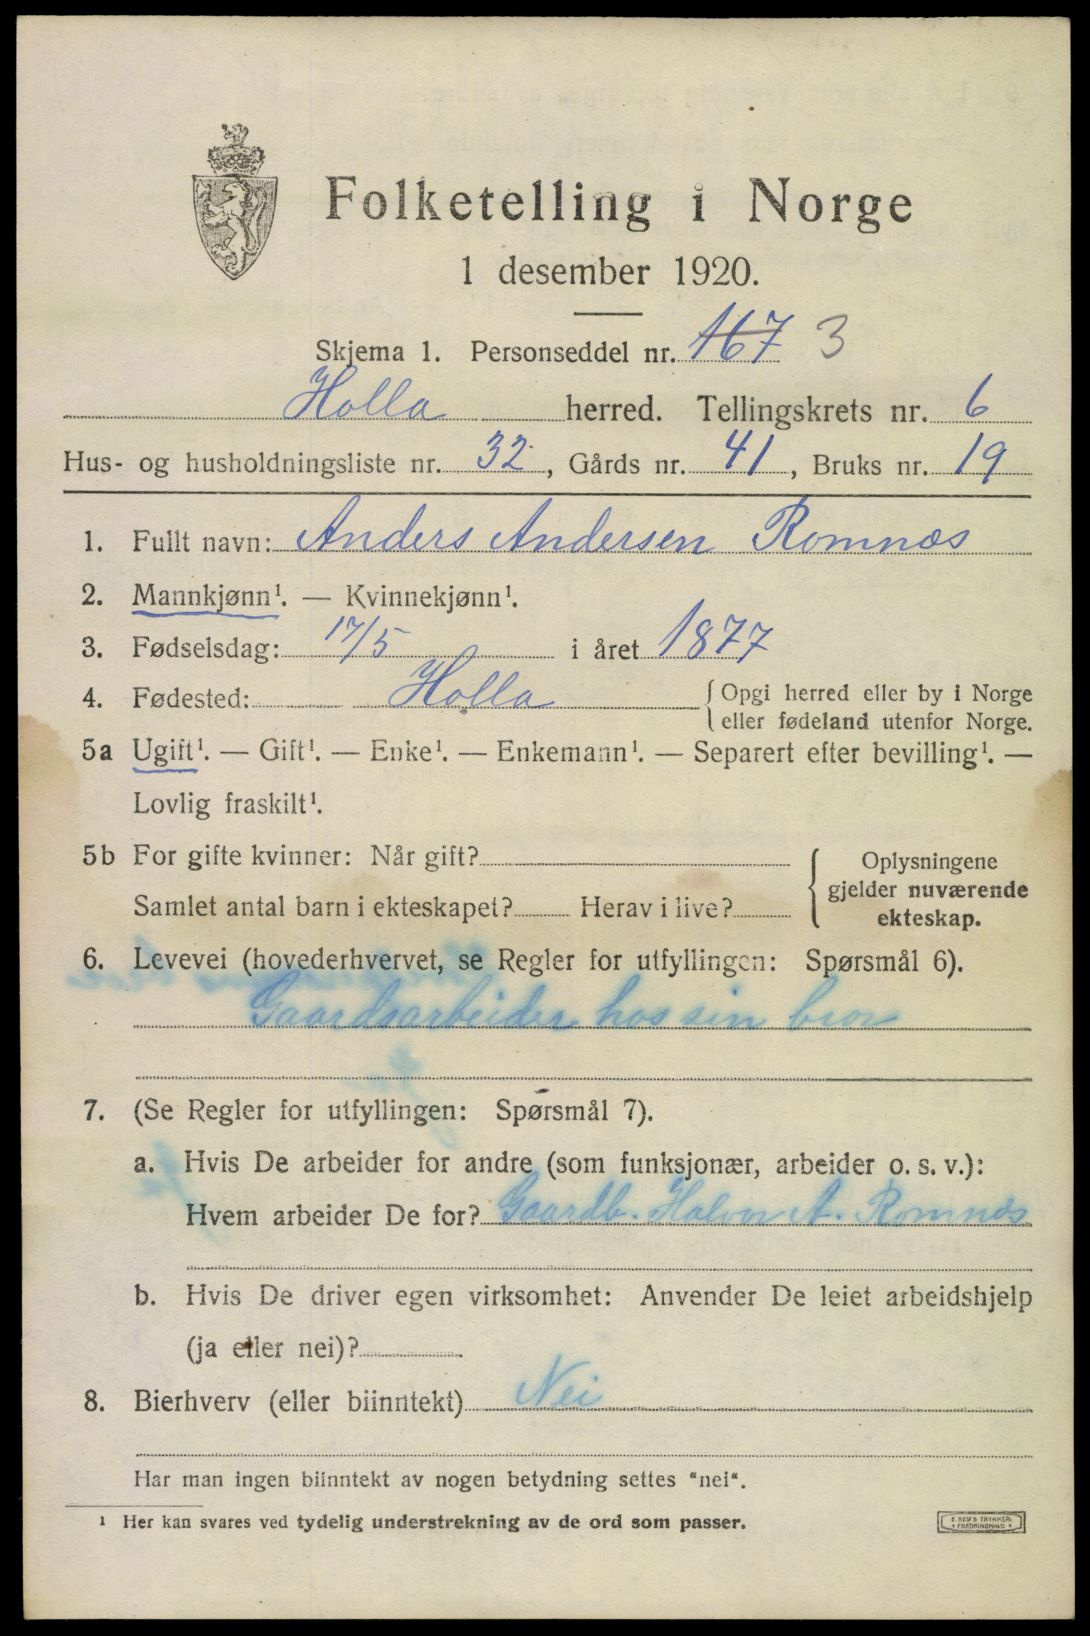 Folketelling i Norge
1 desember 1920.
Skjema 1. Personseddel nr. 167 3
Holla herred. Tellingskrets nr. 6
Hus- og husholdningsliste nr. 32, Gårds nr. 41, Bruks nr. 19
1. Fullt navn: Anders Andersen Romnæs
2. Mannkjønn¹. — Kvinnekjønn¹.
3. Fødselsdag: 17/5 i året 1877
4. Fødested: Holla {Opgi herred eller by i Norge
eller fødeland utenfor Norge.
5a Ugift¹. — Gift¹. — Enke¹. — Enkemann¹. — Separert efter bevilling¹. —
Lovlig fraskilt¹.
5b For gifte kvinner: Når gift?
Samlet antal barn i ekteskapet? Herav i live?
{Oplysningene
gjelder nuværende
ekteskap.
6. Levevei (hovederhvervet, se Regler for utfyllingen: Spørsmål 6).
Gaardsarbeider hos sin bror
7. (Se Regler for utfyllingen: Spørsmål 7).
a. Hvis De arbeider for andre (som funksjonær, arbeider o. s. v.):
Hvem arbeider De for? Gaardb. Halvor A. Romnæs
b. Hvis De driver egen virksomhet: Anvender De leiet arbeidshjelp
(ja eller nei)?
8. Bierhverv (eller biinntekt) Nei
Har man ingen biinntekt av nogen betydning settes "nei".
¹ Her kan svares ved tydelig understrekning av de ord som passer.